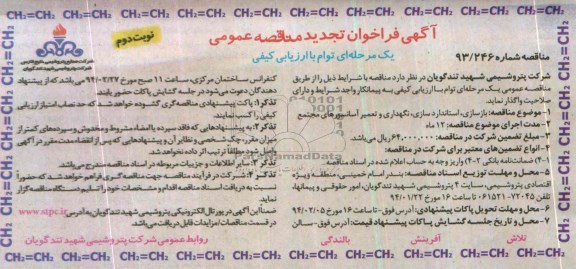 آگهی فراخوان تجدید مناقصه عمومی
نوبت دوم
یک مرحله‌ای توام با ارزیابی کیفی
مناقصه شماره ۹۳/۲۴۶
شرکت پتروشیمی شهید تندگویان در نظر دارد مناقصه با شرایط ذیل را از طریق
مناقصه عمومی یک مرحله‌ای توام با ارزیابی کیفی به پیمانکار واجد شرایط و دارای
صلاحیت واگذار نماید.
۱- موضوع مناقصه: بازسازی، استاندارد سازی، نگهداری و تعمیر آسانسورهای مجتمع
۲- مدت اجرای موضوع مناقصه: ۱۲ ماه
۳- مبلغ تضمین شرکت در مناقصه: ۶۴.۰۰۰.۰۰۰ ریال می‌باشد.
۴- انواع تضمین‌های معتبر برای شرکت در مناقصه:
۱-۴) ضمانت‌نامه بانکی ۲-۴) واریز وجه به حساب اعلام شده در اسناد مناقصه
۵- محل و مهلت توزیع اسناد مناقصه: بندر امام خمینی، منطقه ویژه
اقتصادی پتروشیمی، سایت ۴ پتروشیمی شهید تندگویان، امور حقوقی و پیمانها،
تلفن ۷۲۰۴۵-۰۶۱۵۲۱ تا ساعت ۱۶ مورخ ۹۴/۰۱/۲۲
۶- محل و مهلت تحویل پاکات پیشنهادی: آدرس فوق - تا ساعت ۱۶ مورخ ۹۴/۰۲/۰۵
۷- محل و تاریخ جلسه گشایش پاکات پیشنهاد قیمت: آدرس فوق - سالن
کنفرانس ساختمان مرکزی، ساعت ۱۱ صبح مورخ ۹۴/۰۲/۲۷ می‌باشد که از پیشنهاد
دهندگان دعوت می‌شود در جلسه گشایش پاکات حضور یابند.
تذکر۱: پاکت پیشنهادی مناقصه‌گری گشوده خواهد شد که حد نصاب امتیاز ارزیابی
کیفی را کسب نمایند.
تذکر۲: به پیشنهادهایی که فاقد سپرده یا امضاء مشروط و مخدوش و سپرده‌های کمتر از
میزان مقرر، چک شخصی و نظایر آن و پیشنهادهایی که پس از انقضاء مدت مقرر در آگهی
واصل شود مطلقاً ترتیب اثر داده نخواهد شد.
تذکر ۳: سایر اطلاعات و جزییات مربوطه در اسناد مناقصه مندرج می‌باشد.
تذکر ۴: شرکت در فرآیند مناقصه جهت مناقصه‌گری فراهم خواهد شد که حضوراً
نسبت به دریافت اسناد مناقصه اقدام و مشخصات خود را تسلیم دستگاه مناقصه گزار
نماید.
ضمناً این آگهی در پورتال الکترونیکی پتروشیمی شهید تندگویان به آدرس www.stpc.ir
در قسمت مناقصات/مزایدات قابل دریافت می‌باشد.
روابط عمومی شرکت پتروشیمی شهید تندگویان
تلاش آفرینش بالندگی
CH₂=CH₂ CH₂=CH₂ CH₂=CH₂ CH₂=CH₂